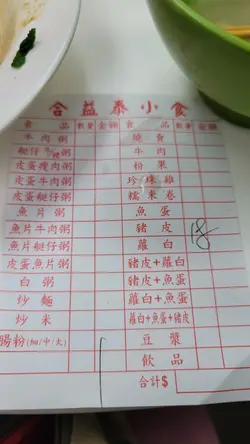 合益泰小食
食品 數量 金額 食品 數量 金額
牛肉粥 燒賣
艇仔粥 牛肉
皮蛋瘦肉粥 粉果
皮蛋牛肉粥 珍珠雞
皮蛋艇仔粥 糯米卷
魚片粥 魚蛋
魚片牛肉粥 豬皮 18
魚片艇仔粥 蘿白
皮蛋魚片粥 豬皮+蘿白
白粥 豬皮+魚蛋
炒麵 蘿白+魚蛋
炒米 蘿白+魚蛋+豬皮
腸粉(細/中/大) 豆漿
飲品
合計$